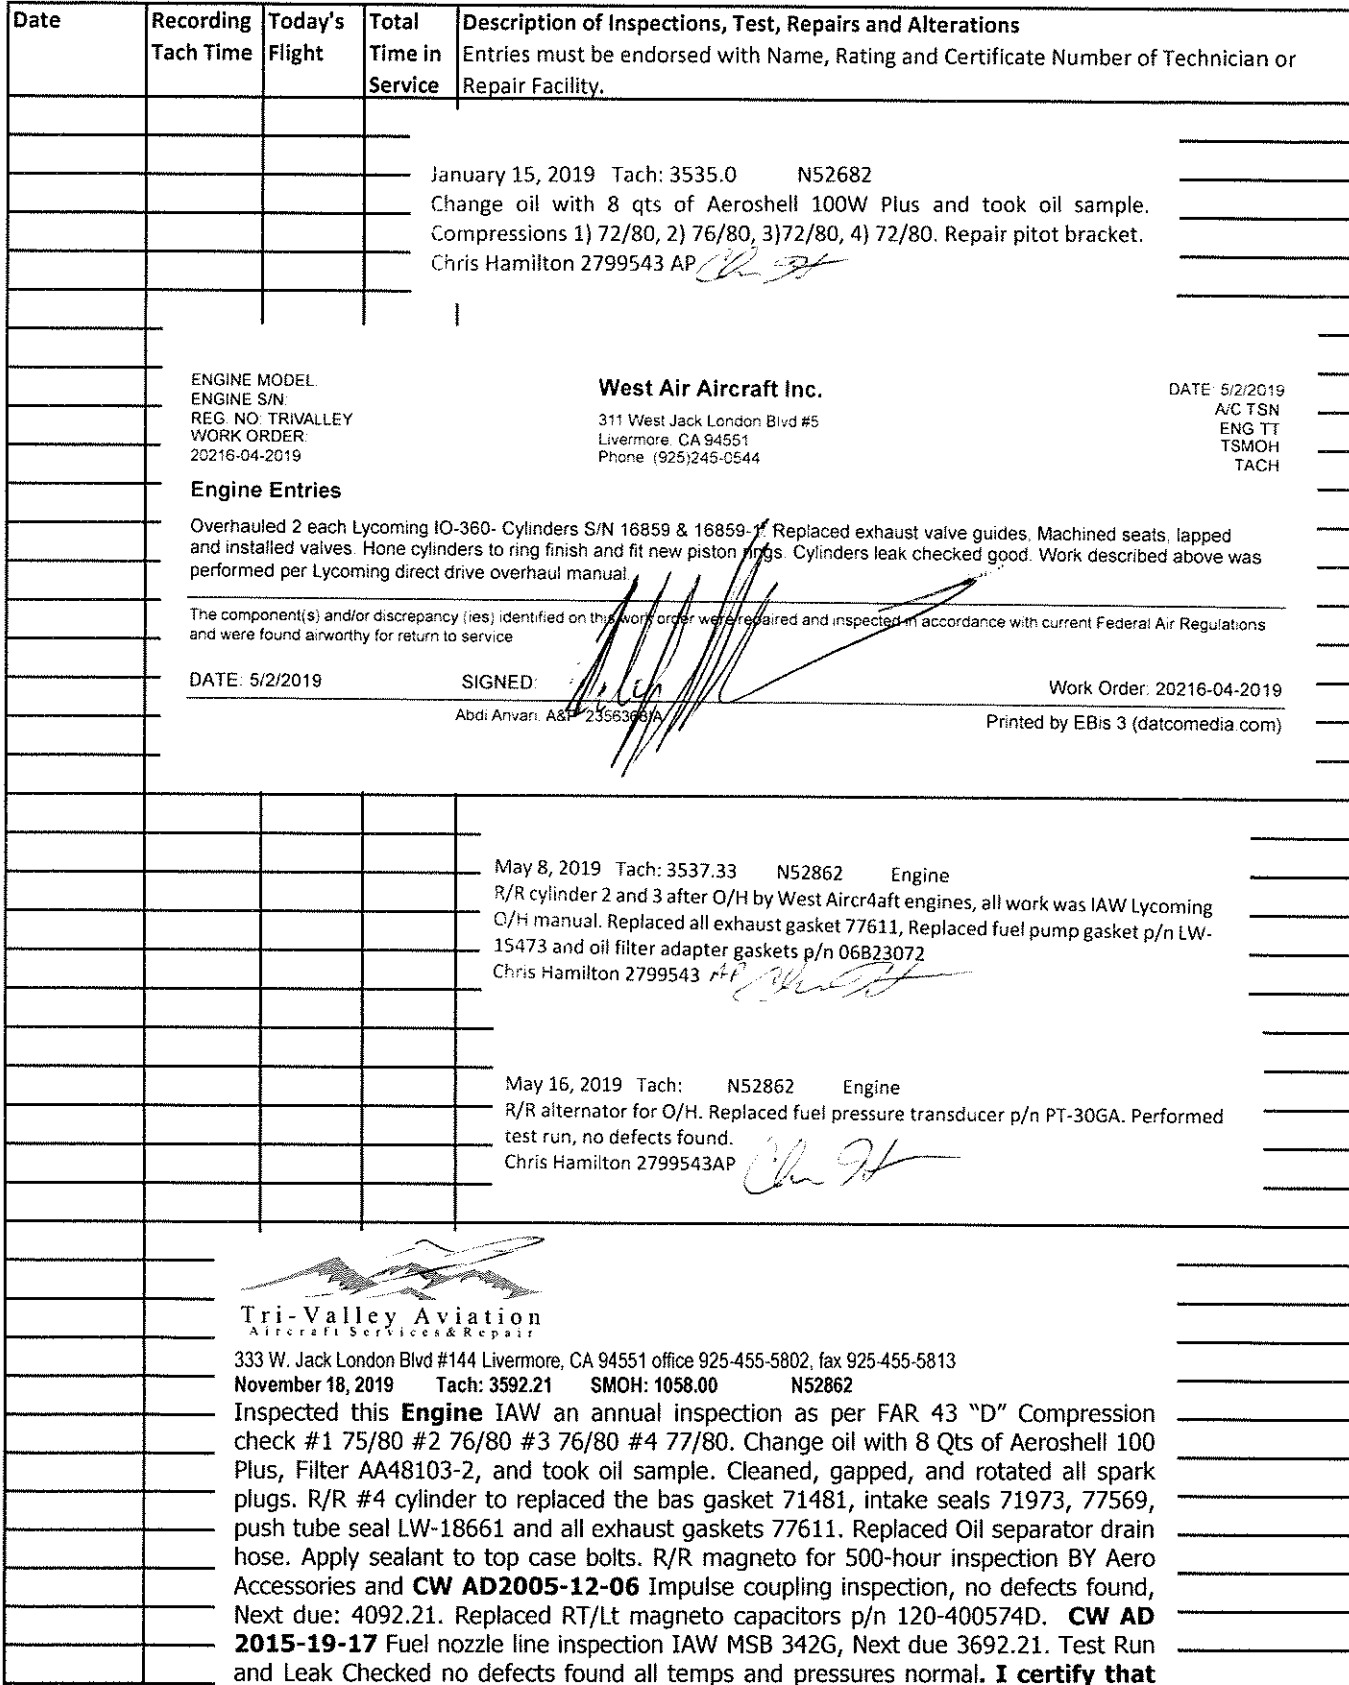 Date Recording Tach Time Today's Flight Total Time in Service Description of Inspections, Test, Repairs and Alterations
Entries must be endorsed with Name, Rating and Certificate Number of Technician or
Repair Facility.
January 15, 2019 Tach: 3535.0 N52682
Change oil with 8 qts of Aeroshell 100W Plus and took oil sample.
Compressions 1) 72/80, 2) 76/80, 3)72/80, 4) 72/80. Repair pitot bracket.
Chris Hamilton 2799543 AP
ENGINE MODEL:
ENGINE S/N:
REG. NO: TRIVALLEY
WORK ORDER:
20216-04-2019
West Air Aircraft Inc.
311 West Jack London Blvd #5
Livermore, CA 94551
Phone (925)245-0544
DATE: 5/2/2019
A/C TSN
ENG TT
TSMOH
TACH
Engine Entries
Overhauled 2 each Lycoming IO-360- Cylinders S/N 16859 & 16859-1. Replaced exhaust valve guides, Machined seats, lapped
and installed valves. Hone cylinders to ring finish and fit new piston rings. Cylinders leak checked good. Work described above was
performed per Lycoming direct drive overhaul manual.
The component(s) and/or discrepancy (ies) identified on this work order were repaired and inspected in accordance with current Federal Air Regulations
and were found airworthy for return to service
DATE: 5/2/2019 SIGNED: Work Order: 20216-04-2019
Abdi Anvari, A&P 2356368IA Printed by EBis 3 (datcomedia.com)
May 8, 2019 Tach: 3537.33 N52862 Engine
R/R cylinder 2 and 3 after O/H by West Aircr4aft engines, all work was IAW Lycoming
O/H manual. Replaced all exhaust gasket 77611, Replaced fuel pump gasket p/n LW-
15473 and oil filter adapter gaskets p/n 06B23072
Chris Hamilton 2799543 AP
May 16, 2019 Tach: N52862 Engine
R/R alternator for O/H. Replaced fuel pressure transducer p/n PT-30GA. Performed
test run, no defects found.
Chris Hamilton 2799543AP
Tri-Valley Aviation
Aircraft Services & Repair
333 W. Jack London Blvd #144 Livermore, CA 94551 office 925-455-5802, fax 925-455-5813
November 18, 2019 Tach: 3592.21 SMOH: 1058.00 N52862
Inspected this Engine IAW an annual inspection as per FAR 43 “D” Compression
check #1 75/80 #2 76/80 #3 76/80 #4 77/80. Change oil with 8 Qts of Aeroshell 100
Plus, Filter AA48103-2, and took oil sample. Cleaned, gapped, and rotated all spark
plugs. R/R #4 cylinder to replaced the bas gasket 71481, intake seals 71973, 77569,
push tube seal LW-18661 and all exhaust gaskets 77611. Replaced Oil separator drain
hose. Apply sealant to top case bolts. R/R magneto for 500-hour inspection BY Aero
Accessories and CW AD2005-12-06 Impulse coupling inspection, no defects found,
Next due: 4092.21. Replaced RT/Lt magneto capacitors p/n 120-400574D. CW AD
2015-19-17 Fuel nozzle line inspection IAW MSB 342G, Next due 3692.21. Test Run
and Leak Checked no defects found all temps and pressures normal. I certify that